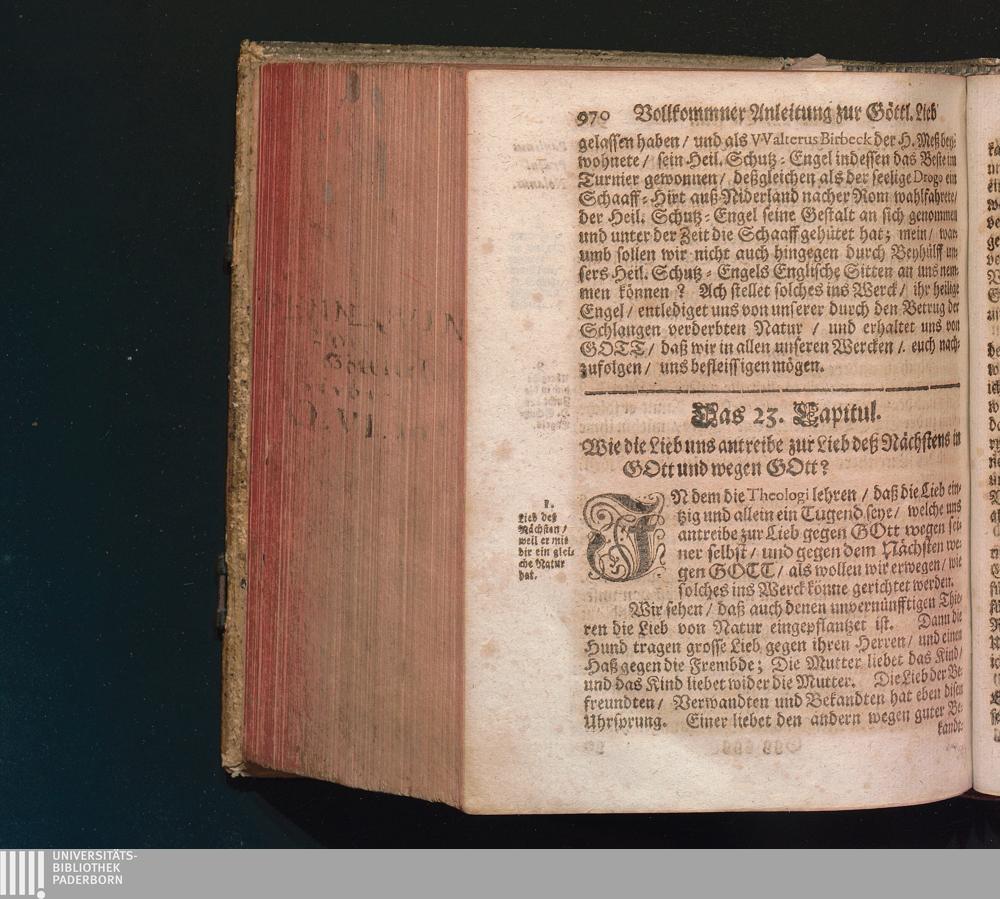 970 Vollkommner Anleitung zur Göttl. Lieb
gelassen haben / und als VValterus Birbeck der H. Meß bey-
wohnete / sein Heil. Schutz-Engel indessen das Beste im
Turnier gewonnen / deßgleichen als der seelige Drogo ein
Schaaff-Hirt auß Niderland nacher Rom wahlfahrete /
der Heil. Schutz-Engel seine Gestalt an sich genommen
und unter der Zeit die Schaaff gehütet hat; mein / war-
umb sollen wir nicht auch hingegen durch Beyhülff un-
sers Heil. Schutz-Engels Englische Sitten an uns nem-
men können? Ach stellet solches ins Werck / ihr heilige
Engel / entlediget uns von unserer durch den Betrug der
Schlangen verderbten Natur / und erhaltet uns von
GOTT / daß wir in allen unseren Wercken / euch nach-
zufolgen / uns befleissigen mögen.
Das 23. Capitul.
Wie die Lieb uns antreibe zur Lieb deß Nächstens in
GOtt und wegen GOtt?
1.
Lieb deß
Nächsten /
weil er mit
dir ein glei-
che Natur
hat.
IN dem die Theologi lehren / daß die Lieb ein-
tzig und allein ein Tugend seye / welche uns
antreibe zur Lieb gegen GOtt wegen sei-
ner selbst / und gegen dem Nächsten we-
gen GOTT / als wollen wir erwegen / wie
solches ins Werck könne gerichtet werden.
Wir sehen / daß auch denen unvernünfftigen Thie-
ren die Lieb von Natur eingepflantzet ist. Dann die
Hund tragen grosse Lieb gegen ihren Herren / und einen
Haß gegen die Frembde; Die Mutter liebet das Kind /
und das Kind liebet wider die Mutter. Die Lieb der Be-
freundten / Verwandten und Bekandten hat eben disen
Uhrsprung. Einer liebet den andern wegen guter Be-
kandt-
UNIVERSITÄTS-
BIBLIOTHEK
PADERBORN